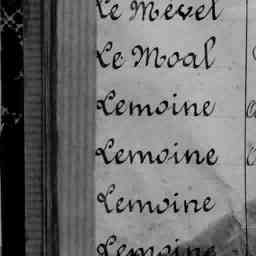 Le Mével
Le Moal
Lemoine
Lemoine
Lemoine
Lemoine